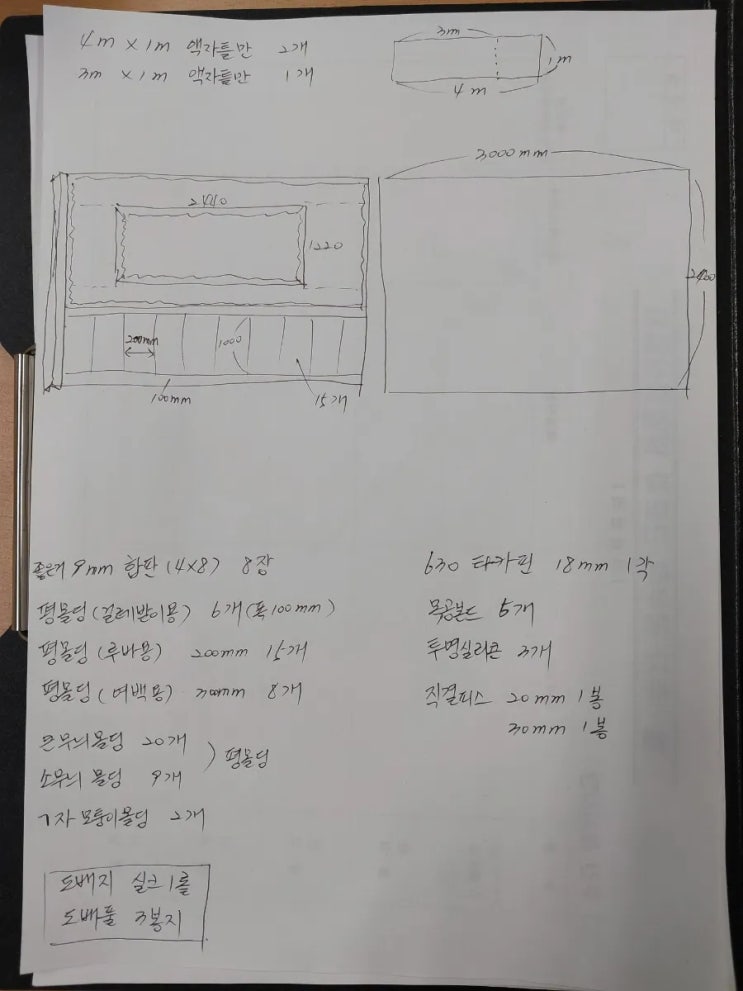 4m × 1m 액자틀만 2개
3m × 1m 액자틀만 1개
3m
1m
4m
3000mm
2400
2440
1220
200mm
1000
100mm
15개
좋은거 9mm 합판 (4×8) 8장
평몰딩 (걸레받이용) 6개 (폭 100mm)
평몰딩 (루바용) 200mm 15개
평몰딩 (여백용) 8개
큰무늬몰딩 20개
소무늬 몰딩 9개
) 평몰딩
ㄱ자 모퉁이몰딩 2개
도배지 실크 1롤
도배풀 3봉지
630 타카핀 18mm 1각
목공본드 5개
투명실리콘 3개
직결피스 20mm 1봉
30mm 1봉